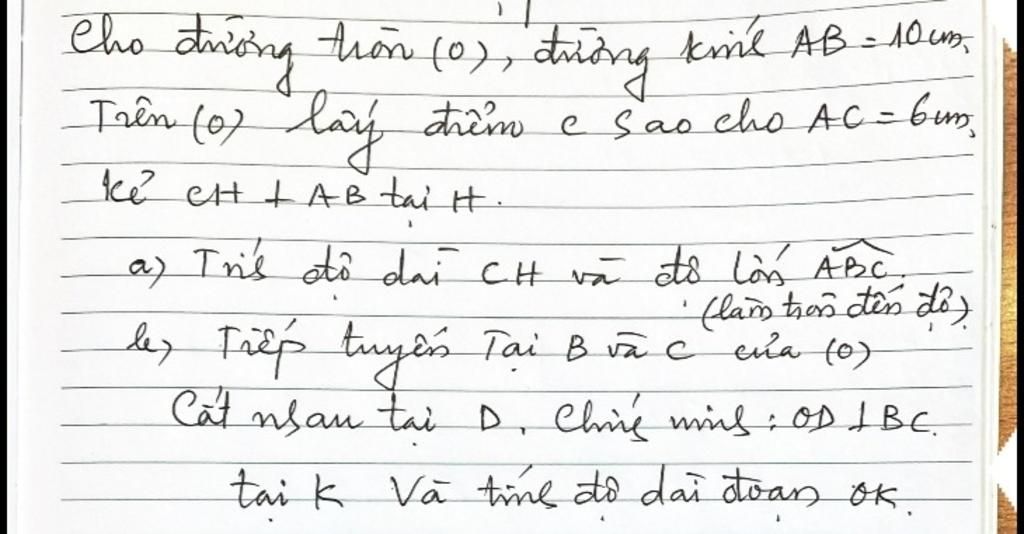 Cho đường tròn (O), đường kính AB = 10cm.
Trên (O) lấy điểm C sao cho AC = 6cm.
Kẻ CH ⊥ AB tại H.
a) Tính độ dài CH và độ lớn \widehat{ABC}.
(làm tròn đến độ).
b) Tiếp tuyến Tại B và C của (O)
Cắt nhau tại D. Chứng minh: OD ⊥ BC.
tại K Và tính độ dài đoạn OK.